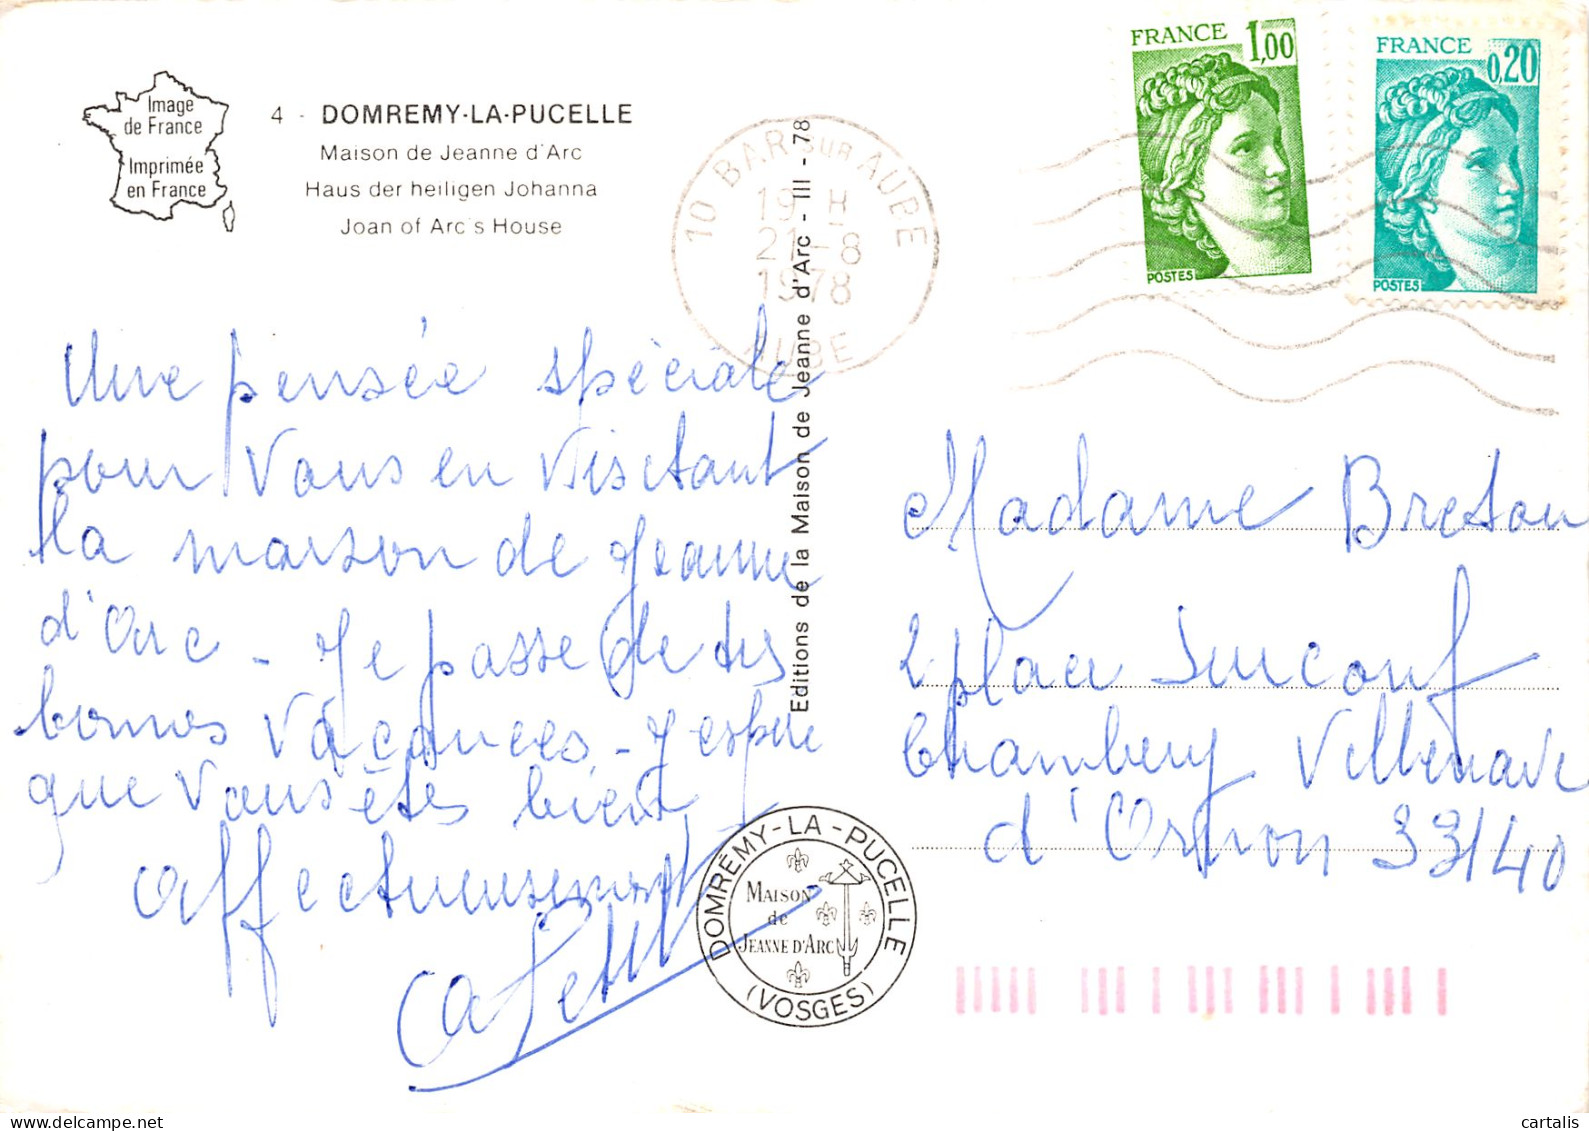 Image
de France
Imprimée
en France
4 - DOMREMY-LA-PUCELLE
Maison de Jeanne d'Arc
Haus der heiligen Johanna
Joan of Arc's House
10 BAR SUR AUBE
19 H
21-8
1978
AUBE
FRANCE 1,00
POSTES
FRANCE 0,20
POSTES
Editions de la Maison de Jeanne d'Arc - III - 78
Une pensée spéciale
pour Vous en visitant
la maison de Jeanne
d'Arc - Je passe de très
bonnes vacances - J'espère
que vous êtes bien
Affectueusement
DOMRÉMY-LA-PUCELLE
MAISON
de
JEANNE D'ARC
(VOSGES)
Madame Breton
2 place Surcouf
Chambery Villenave
d'Ornon 33140
cartalis